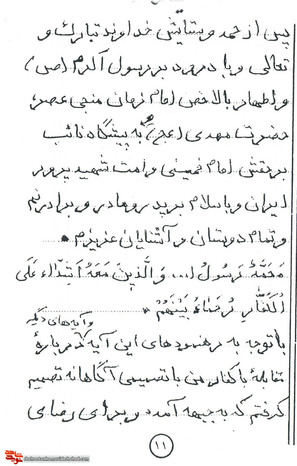 پس از حمد و ستایش خداوند تبارک و
تعالی و با درود بر رسول اکرم (ص)
و اطهار بالاخص امام زمان منجی عصر،
حضرت مهدی (عج) به پیشگاه نائب
بر حقش امام خمینی و امت شهید پرور
ایران و با سلام بر پدر و مادر و برادرانم
و تمام دوستان و آشنایان عزیزم
مُحَمَّدٌ رَسُولُ ا... وَ الَّذِینَ مَعَهُ اَشِدّاءُ عَلَی
الْکُفّارِ رُحَماءُ بَیْنَهُمْ
و آیه‌های دیگر
با توجه به رهنمودهای این آیه که درباره
مقابله با کفار من با تصمیمی آگاهانه تصمیم
گرفتم که به جبهه آمده و برای رضای
۱۱